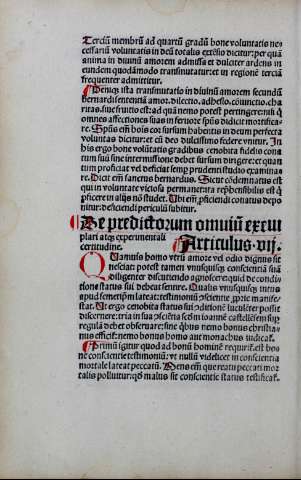 Terciũ membrũ ad quartũ gradũ bone voluntatis nec
cessariũ voluntatis in deũ totalis extẽsio dicitur: per quã
anima in diuinũ amorem admissa et dulciter ardens in
eundem quodãmodo transmutatur: et in regionẽ terciã
frequenter admittitur.
Deniqꝫ ista transmutatio in diuinũ amorem secundũ
bernardi sententiã amor. dilectio. adhesio. cõiunctio. cha
ritas. siue fruitio est: ad quã nemo potest pertingere: nisi q̃
omnes affectiones suas in feruore spũs didicit mortifica-
re. Spũs eñ bonis cor sursum habentis in deum perfecta
voluntas dicitur: et cũ deo dulcissimo federe vnitur. In
his ergo bone volũtatis gradibus cenobita fidelis cona-
tum suũ sine intermissione debet sursum dirigere: et quan
tum proficiat vel deficiat semp prudenti studio examina
re. Dicit eñ sanctus bernardus. Sicut cõdemnatus est
qui in voluntate viciosa permanet: ita rep̃hensibilis est q̃
ꝓficere in alijs nõ studet. Ubi eñ ꝓficiendi conatus depo
nitur: deficiendi periculũ subitur.
De predictorum omnium exem
plari atqꝫ experimentali
certitudine. Articulus.vij.
Quamuis homo vtrũ amore vel odio dignus sit
nesciat: potest tamen vnusquisqꝫ conscientiã suã
diligenter discutiendo agnoscere: quid de condi-
tione status sui debeat sentire. Qualis vnusquisqꝫ intus
apud semetip̃m lateat: testimoniũ ꝓscientie ꝓprie manife-
stat. Ut ergo cenobita status sui ꝯditionẽ luculẽter possit
discernere: tria in sua ꝓsciẽtia scdm ioannẽ castellẽsem sup
regulã debet obseruare: sine q̃bus nemo bonus christia-
nus efficit̃: nemo bonus homo aut monachus iudicat̃.
Primũ igitur quod ad bonũ hominẽ requirit̃: est bo-
ne conscientie testimoniũ: vt nullũ videlicet in conscientia
mortale lateat peccatũ. Nemo eñ que reatu peccati mor
talis polluitur: qd malus sit conscientie status testificat̃.